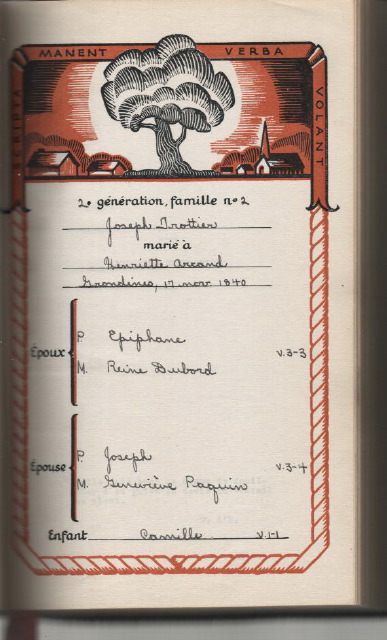 MANENT VERBA
VOLANT
2e génération, famille no 2
Joseph Trottier
marié à
Henriette Arcand
Grondines, 17 nov. 1840
Époux
P. Epiphane
M. Reine Dubord
v.3-3
Épouse
P. Joseph
M. Geneviève Paquin
v.3-4
Enfant Camille v.1-1